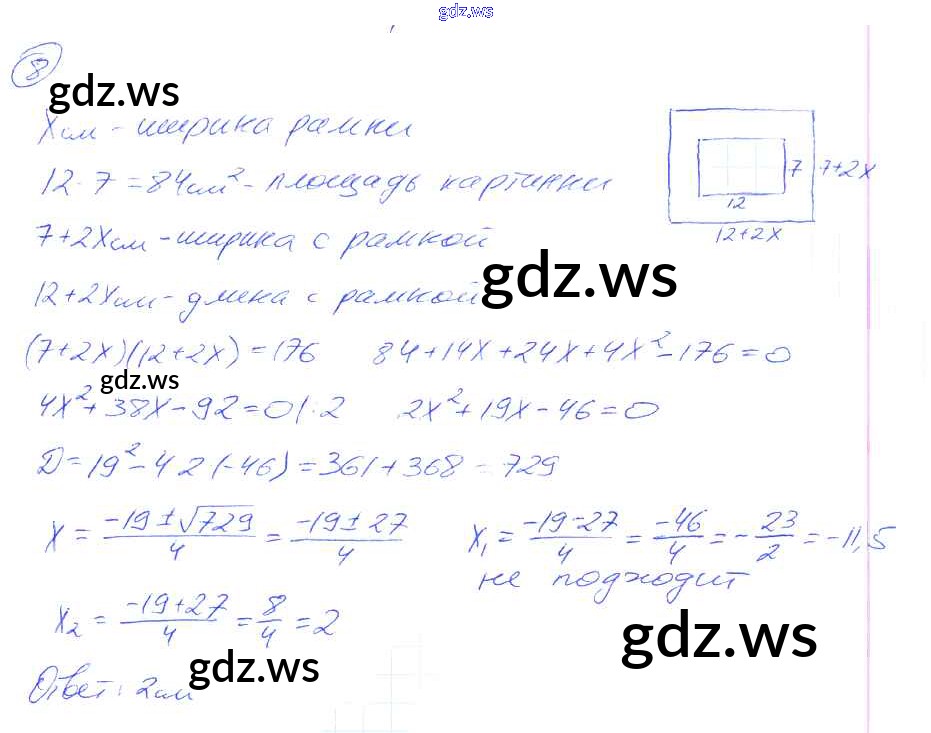 gdz.ws
8
gdz.ws
Xсм - ширина рамки
12·7=84см² - площадь картинки
7 7+2X
12
12+2X
7+2Xсм - ширина с рамкой
gdz.ws
12+2Xсм - длина с рамкой
(7+2X)(12+2X)=176 84+14X+24X+4X²-176=0
gdz.ws
4X²+38X-92=0|·2 2X²+19X-46=0
D=19²-4·2(-46)=361+368=729
X=(-19±√729)/4=(-19±27)/4 X₁=(-19-27)/4=-46/4=-23/2=-11,5
не подходит
X₂=(-19+27)/4=8/4=2
gdz.ws
gdz.ws
Ответ: 2см